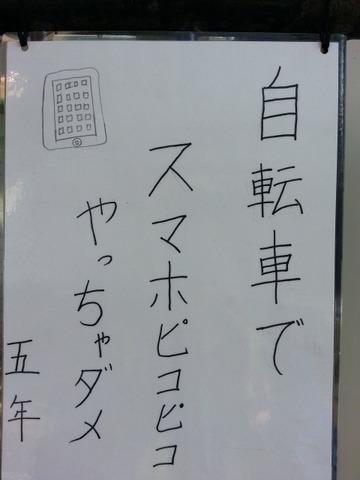 自転車で
スマホピコピコ
やっちゃダメ
五年